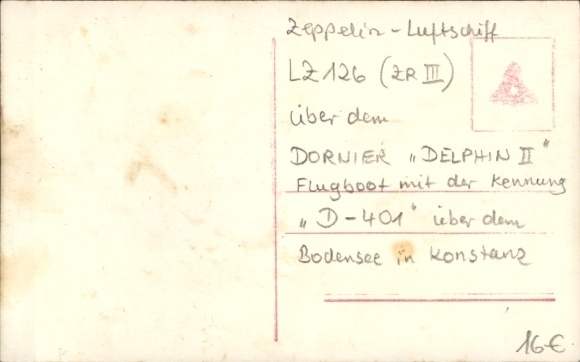 Zeppelin-Luftschiff
LZ 126 (ZR III)
über dem
DORNIER „DELPHIN II"
Flugboot mit der Kennung
„D-401" über dem
Bodensee in Konstanz
16€